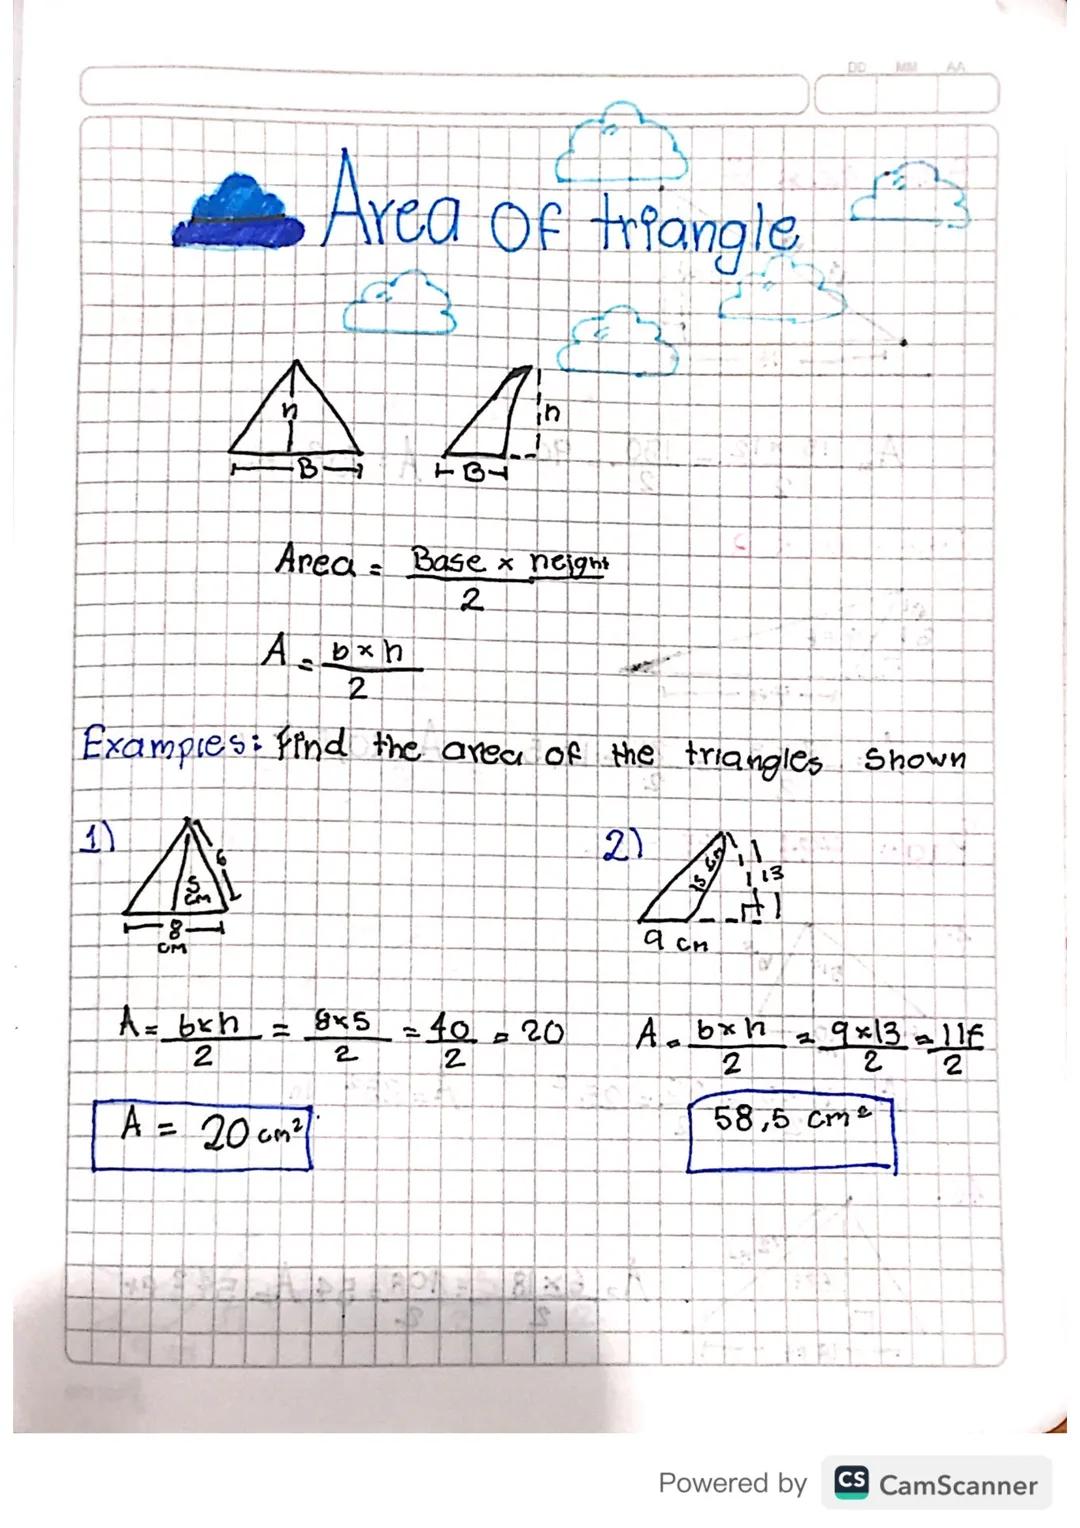 DD MM AA
Area Of triangle
h
h
B
B
Area = Base x height
2
A = b x h
2
Examples: find the area of the triangles Shown
1)
6
5
cm
8
cm
2)
15 cm
13
9 cm
A = b x h = 8x5 = 40 = 20
2 2 2
A = b x h = 9x13 = 117
2 2 2
A = 20 cm²
58,5 cm²
Powered by CS CamScanner